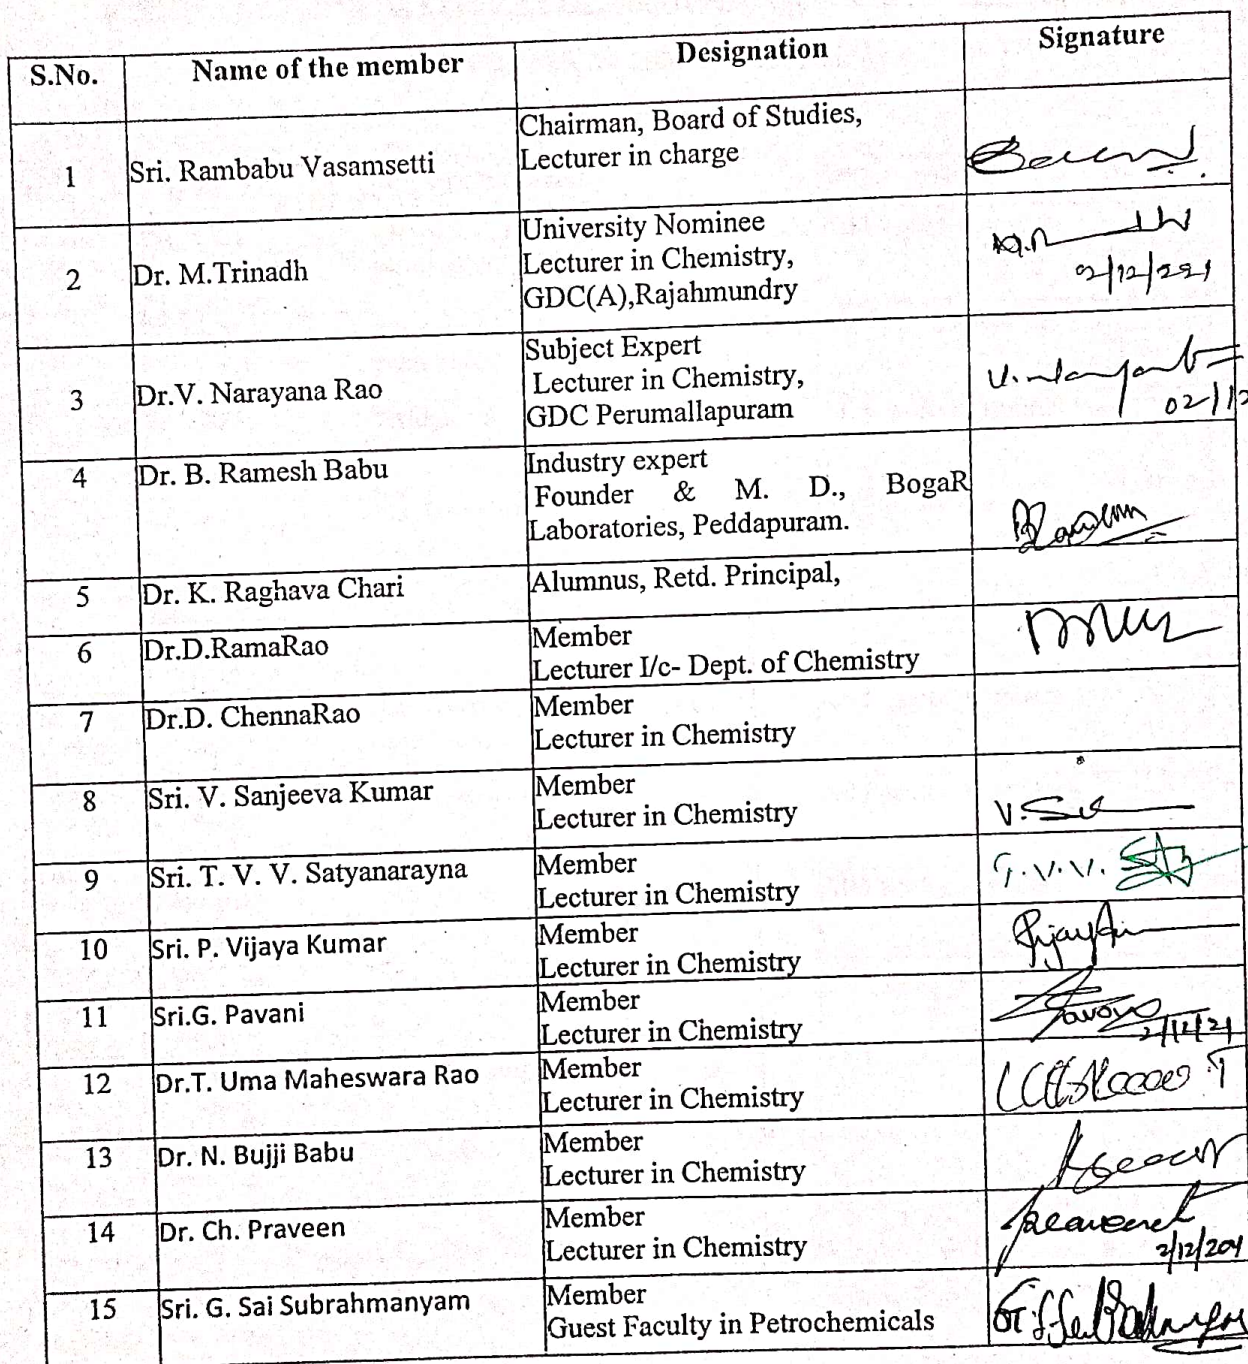 S.No. Name of the member Designation Signature
1 Sri. Rambabu Vasamsetti Chairman, Board of Studies,
Lecturer in charge
2 Dr. M.Trinadh University Nominee
Lecturer in Chemistry,
GDC(A),Rajahmundry
02/12/2021
3 Dr.V. Narayana Rao Subject Expert
Lecturer in Chemistry,
GDC Perumallapuram
02/12
4 Dr. B. Ramesh Babu Industry expert
Founder & M. D., BogaR
Laboratories, Peddapuram.
5 Dr. K. Raghava Chari Alumnus, Retd. Principal,
6 Dr.D.RamaRao Member
Lecturer I/c- Dept. of Chemistry
7 Dr.D. ChennaRao Member
Lecturer in Chemistry
8 Sri. V. Sanjeeva Kumar Member
Lecturer in Chemistry
9 Sri. T. V. V. Satyanarayna Member
Lecturer in Chemistry
10 Sri. P. Vijaya Kumar Member
Lecturer in Chemistry
11 Sri.G. Pavani Member
Lecturer in Chemistry
2/12/21
12 Dr.T. Uma Maheswara Rao Member
Lecturer in Chemistry
13 Dr. N. Bujji Babu Member
Lecturer in Chemistry
14 Dr. Ch. Praveen Member
Lecturer in Chemistry
2/12/2021
15 Sri. G. Sai Subrahmanyam Member
Guest Faculty in Petrochemicals